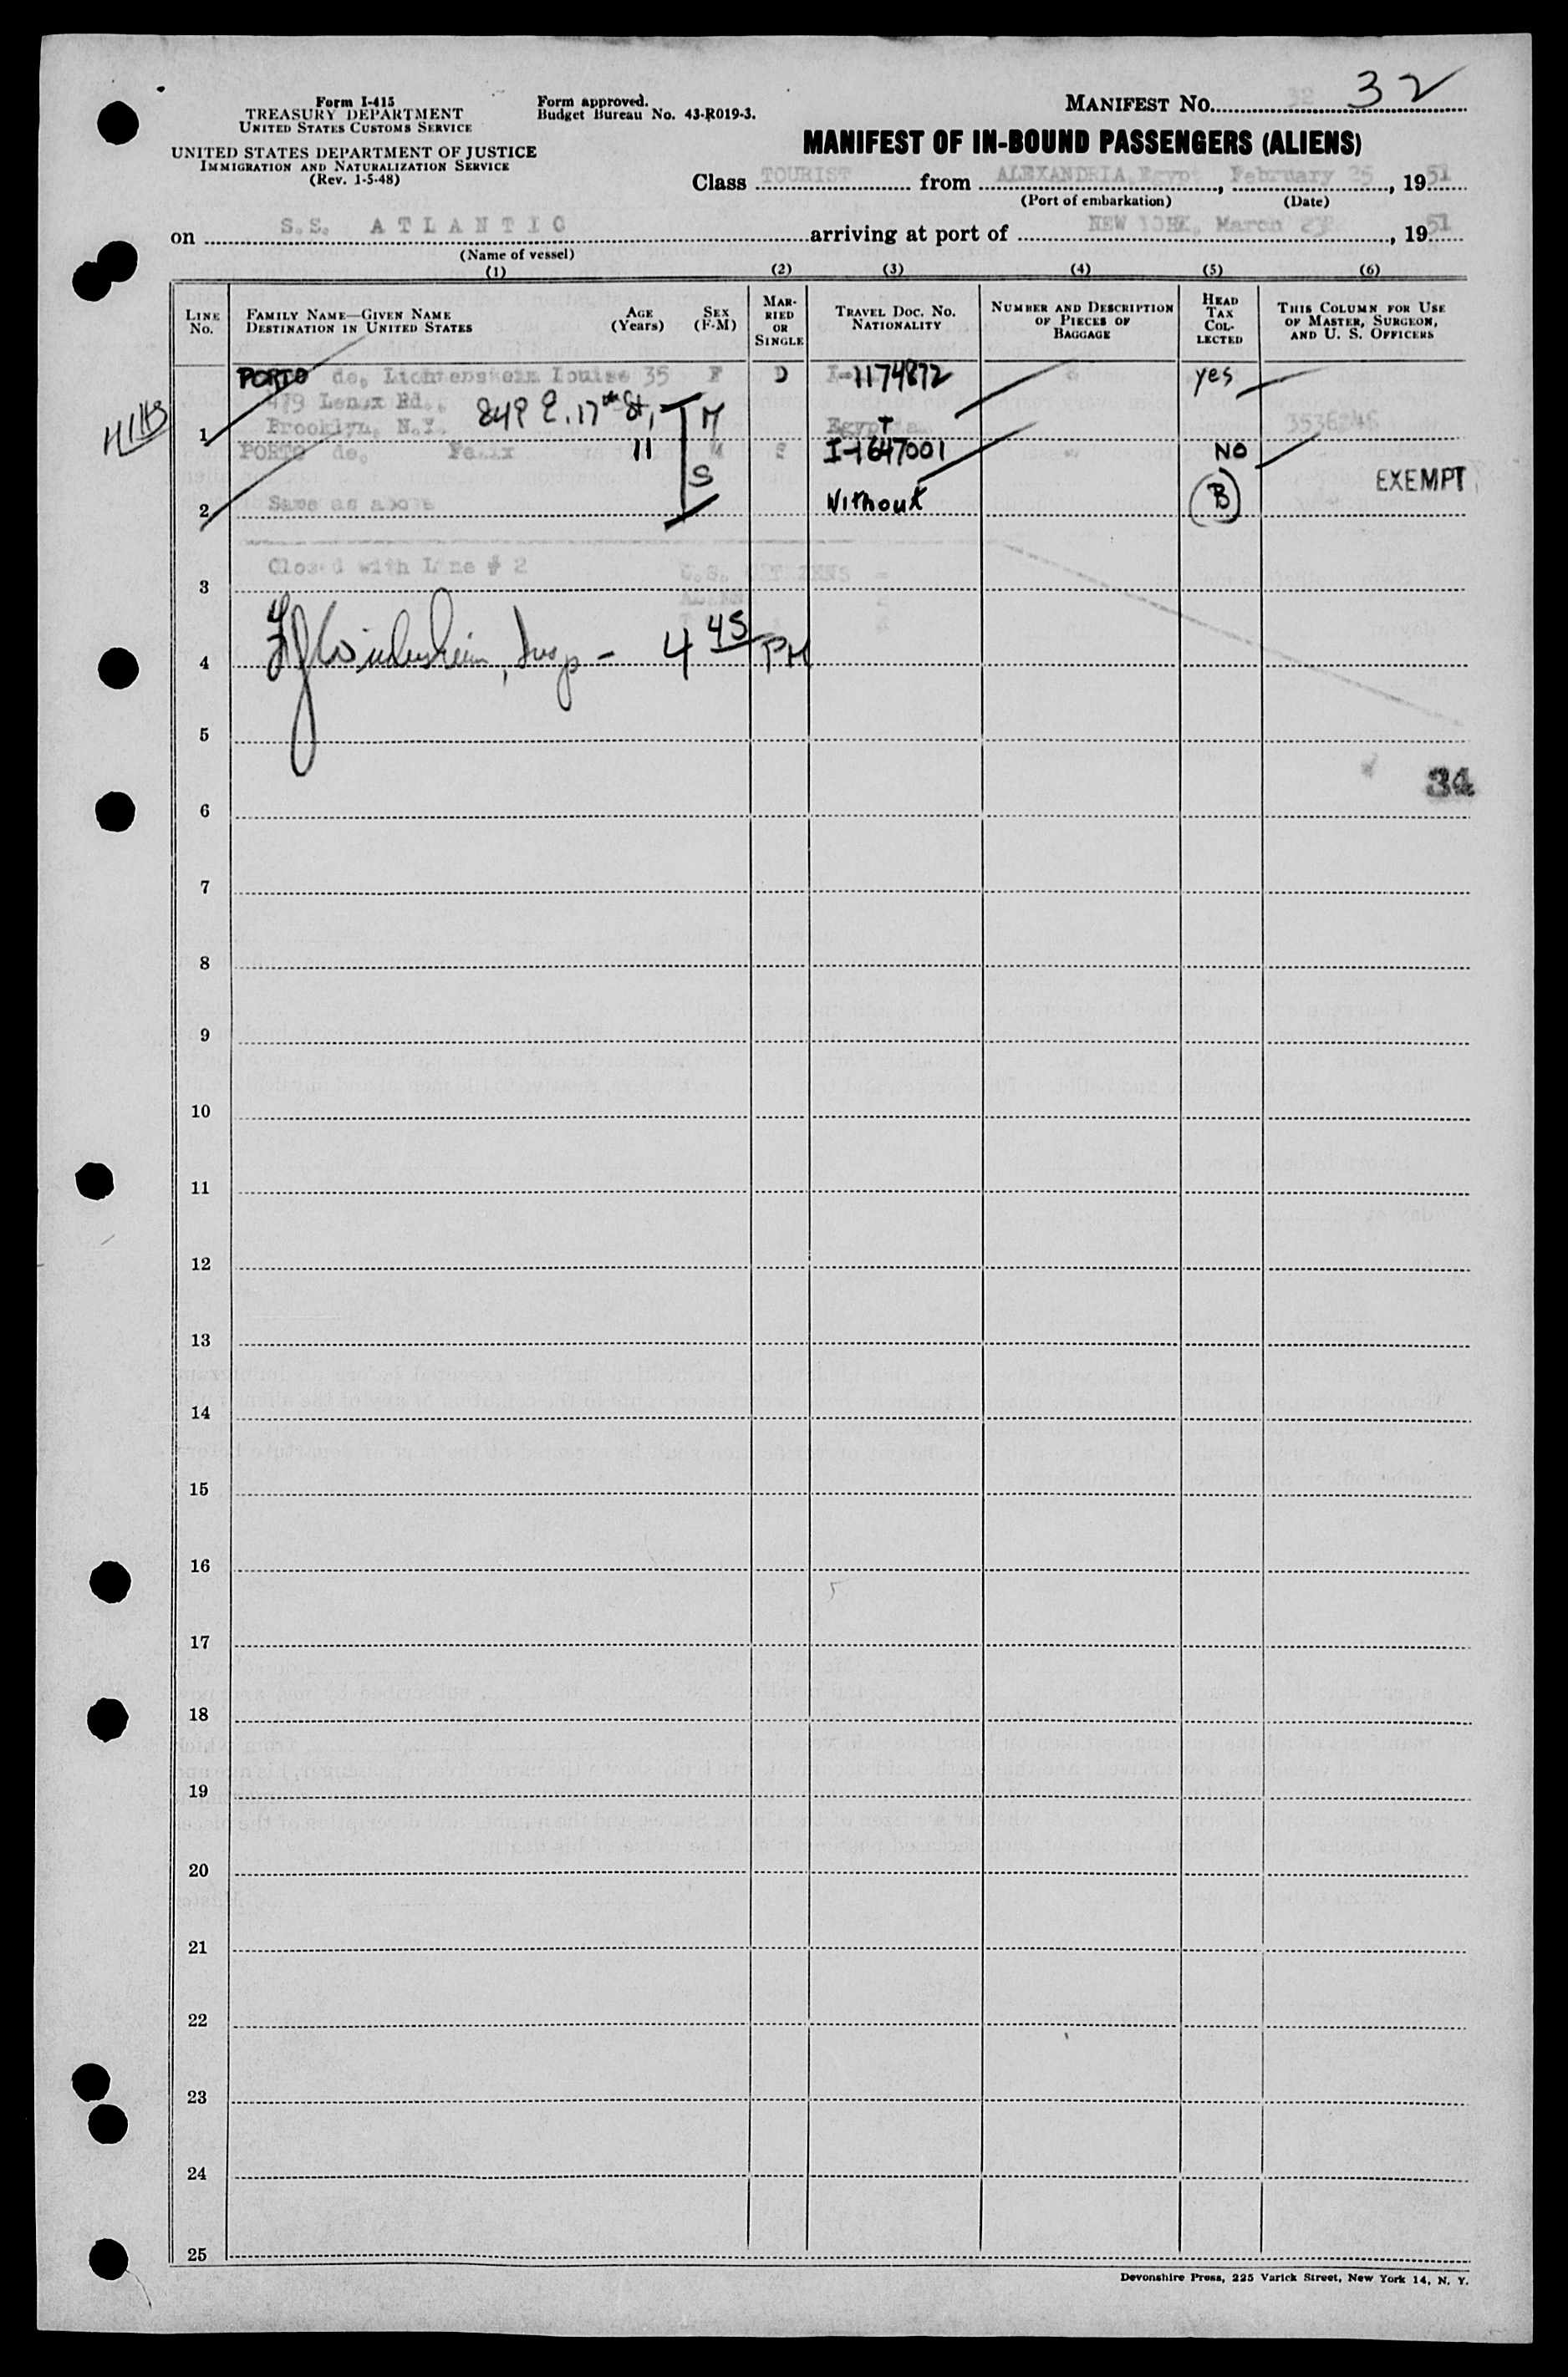 Form I-415
TREASURY DEPARTMENT
UNITED STATES CUSTOMS SERVICE
UNITED STATES DEPARTMENT OF JUSTICE
IMMIGRATION AND NATURALIZATION SERVICE
(Rev. 1-5-48)
Form approved.
Budget Bureau No. 43-R019-3.
MANIFEST NO. 32 32
MANIFEST OF IN-BOUND PASSENGERS (ALIENS)
Class TOURIST from ALEXANDRIA, Egypt, February 25, 1951
(Port of embarkation) (Date)
on S.S. ATLANTIC arriving at port of NEW YORK, March, 1951
(Name of vessel)
(1) (2) (3) (4) (5) (6)
LINE No. FAMILY NAME—GIVEN NAME DESTINATION IN UNITED STATES AGE (Years) SEX (F-M) MARRIED OR SINGLE TRAVEL DOC. NO. NATIONALITY NUMBER AND DESCRIPTION OF PIECES OF BAGGAGE HEAD TAX COLLECTED THIS COLUMN FOR USE OF MASTER, SURGEON, AND U. S. OFFICERS
PORTO de, Lichtenstein Louise 35 F D I-1174872 yes
479 Lenox Rd., 849 E. 17th St, M
1 Brooklyn, N.Y. 3536246
PORTO de, Felix 11 M S I-1647001 NO
S EXEMPT
2 Same as above Without B
Closed with Line # 2 U.S. CITIZENS -
3
4 Insp - 4 45 PM
5
34
6
7
8
9
10
11
12
13
14
15
16
17
18
19
20
21
22
23
24
25
Devonshire Press, 225 Varick Street, New York 14, N. Y.